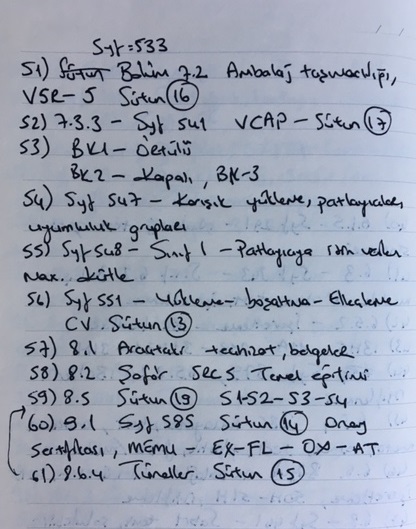 Syf=533
51) Bölüm 7.2 Ambalaj taşımacılığı,
VSR-5 Sütun 16
52) 7.3.3 - Syf 541 VCAP - Sütun 17
53) BK1 - Örtülü
BK2 - Kapalı, BK-3
54) Syf 547 - Karışık yükleme, patlayıcılar,
uyumluluk grupları
55) Syf 548 - Sınıf 1 - Patlayıcıya izin verilen
Max. kütle
56) Syf 551 - Yükleme - boşaltma - Elleçleme
CV Sütun 13
57) 8.1 Araçtaki techizat, belgeler
58) 8.2 Şoför SRC5 Temel eğitimi
59) 8.5 Sütun 19 S1-S2-S3-S4
60) 9.1 Syf 585 Sütun 14 Onay
Sertifikası, MEMU - EX-FL - OX - AT
61) 8.6.4 Tüneller Sütun 15